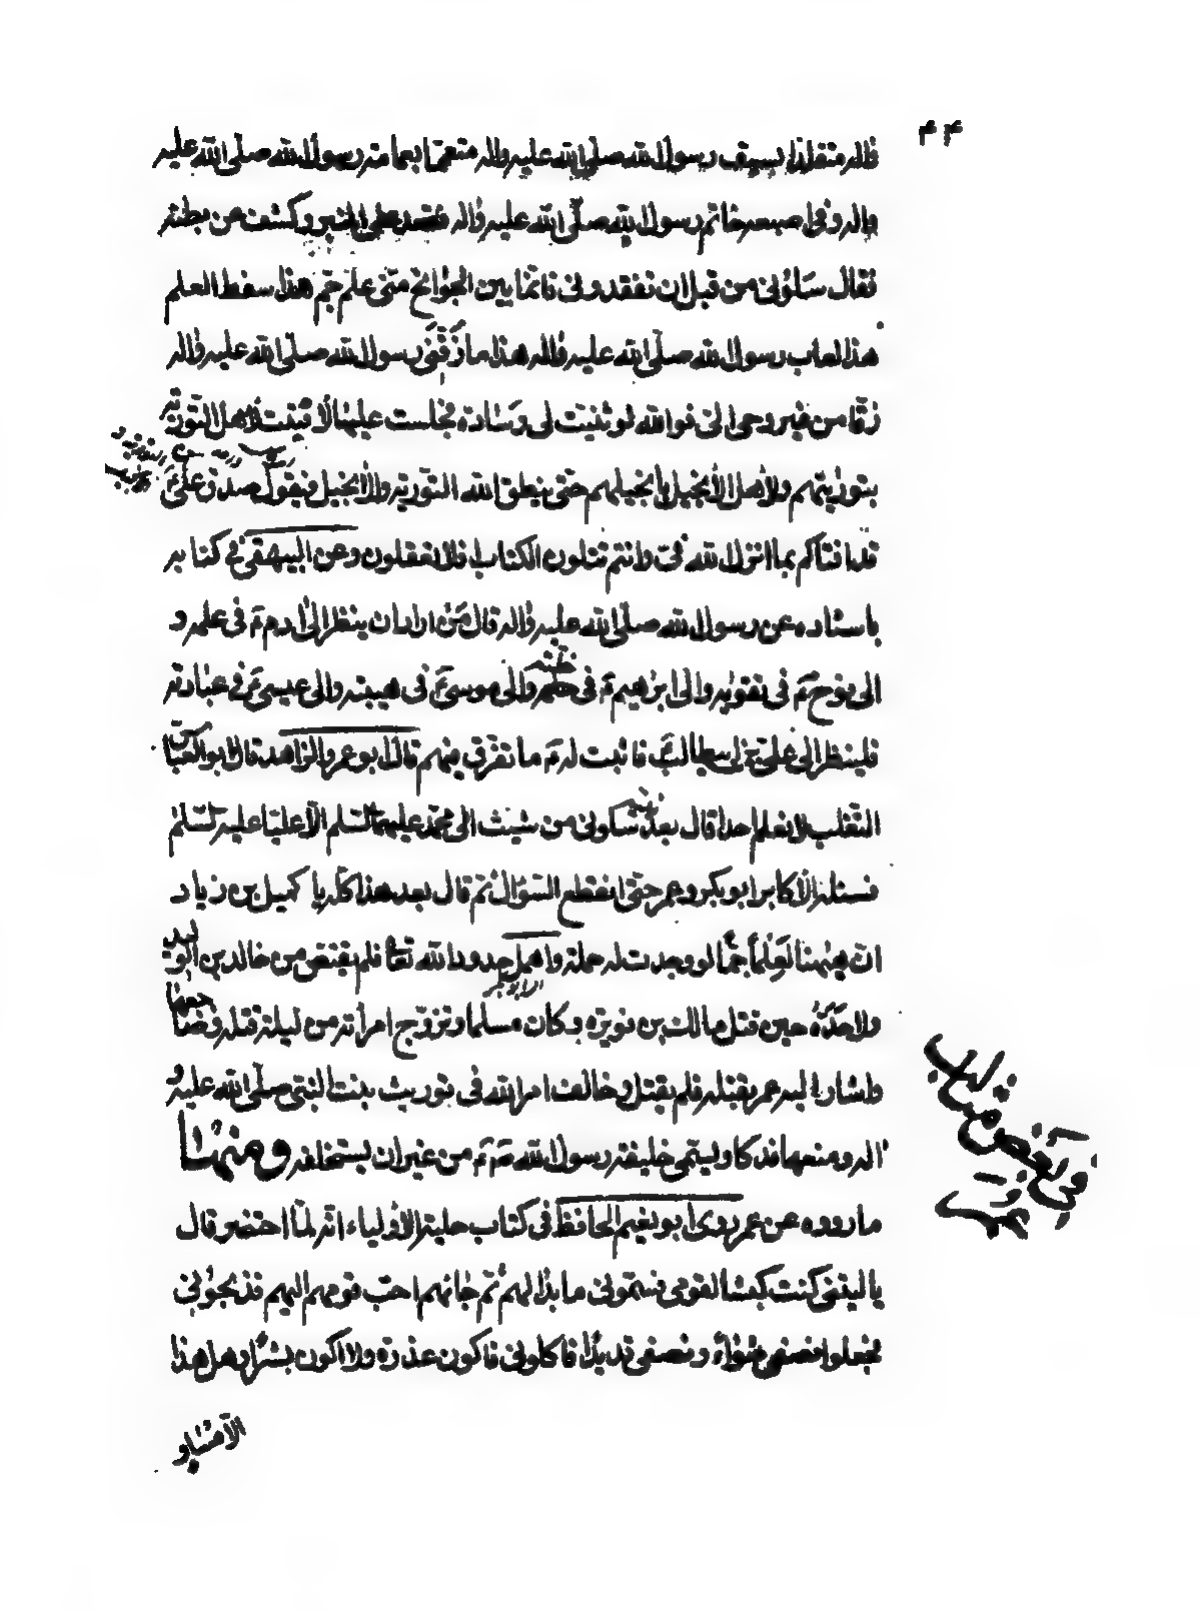 ۴۴
واله متقلدا بسيف رسول الله صلى الله عليه واله متعمّما بعمامة رسول الله صلى الله عليه
واله وفى اصبعه خاتم رسول الله صلّى الله عليه واله فقعد على المنبر وكشف عن بطنه
فقال سلونى من قبل ان تفقدونى فانّما بين الجوانح منّى علم جمّ هذا سفط العلم
هذا لعاب رسول الله صلى الله عليه واله هذا ما زقّنى رسول الله صلّى الله عليه واله
زقّا من غير وحى الىّ فوالله لو ثنيت لى وسادة فجلست عليها لأفتيت لأهل التّورية
بتوريتهم ولأهل الأنجيل بأنجيلهم حتى ينطق الله التورية والأنجيل فيقول صدق علىّ
قد افتاكم بما انزل الله فىّ وانتم تتلون الكتاب افلا تعقلون وعن البيهقى فى كتابه
باسناده عن رسول الله صلّى الله عليه واله قال من اراد ان ينظر الى ادم ع فى علمه و
الى نوح ع فى تقويه والى ابرهيم ع فى خلته والى موسى ع فى هيبته والى عيسى ع فى عبادته
فلينظر الى على بن ابيطالب ع فاثبت له ع ما تفرق فيهم قال ابو عمر والزاهد قال ابو العبّاس
الثعلب لا نعلم احدا قال بعد نبيه سلونى من شيث الى محمّد عليهما السّلم الاّ عليّا عليه السّلم
فسئله الأكابر ابو بكر وعمر حتى انقطع السّؤال ثم قال بعد هذا كلّه يا كميل بن زياد
انّ هيهنا لعلماً جمّا لو وجدت له حملة واهمل ابو بكر حدود الله تعا فلم يقتص من خالد بن الوليد
ولا حدّه حين قتل مالك بن نويره وكان مسلما وتزوّج امرأته من ليلة قتله وضاجعها
واشار اليه عمر بقتله فلم يقتل وخالف امر الله فى توريث بنت النبى صلّى الله عليه و
اله ومنعها فدكا ويسمّى خليفة رسول الله من غير ان يستخلفه ومنها
ما رووه عن عمر روى ابو نعيم الحافظ فى كتاب حلية الأولياء انّه لمّا احتضر قال
يا ليتنى كنت كبشا لقومى فسمّنونى ما بدا لهم ثم جائهم احبّ قومهم اليهم فذبحونى
فجعلوا نصفى شواءً ونصفى قديدًا فاكلونى فاكون عذرة ولا اكون بشرًا وهل هذا
الاّ مساو
فى بعض مثالب
عمر